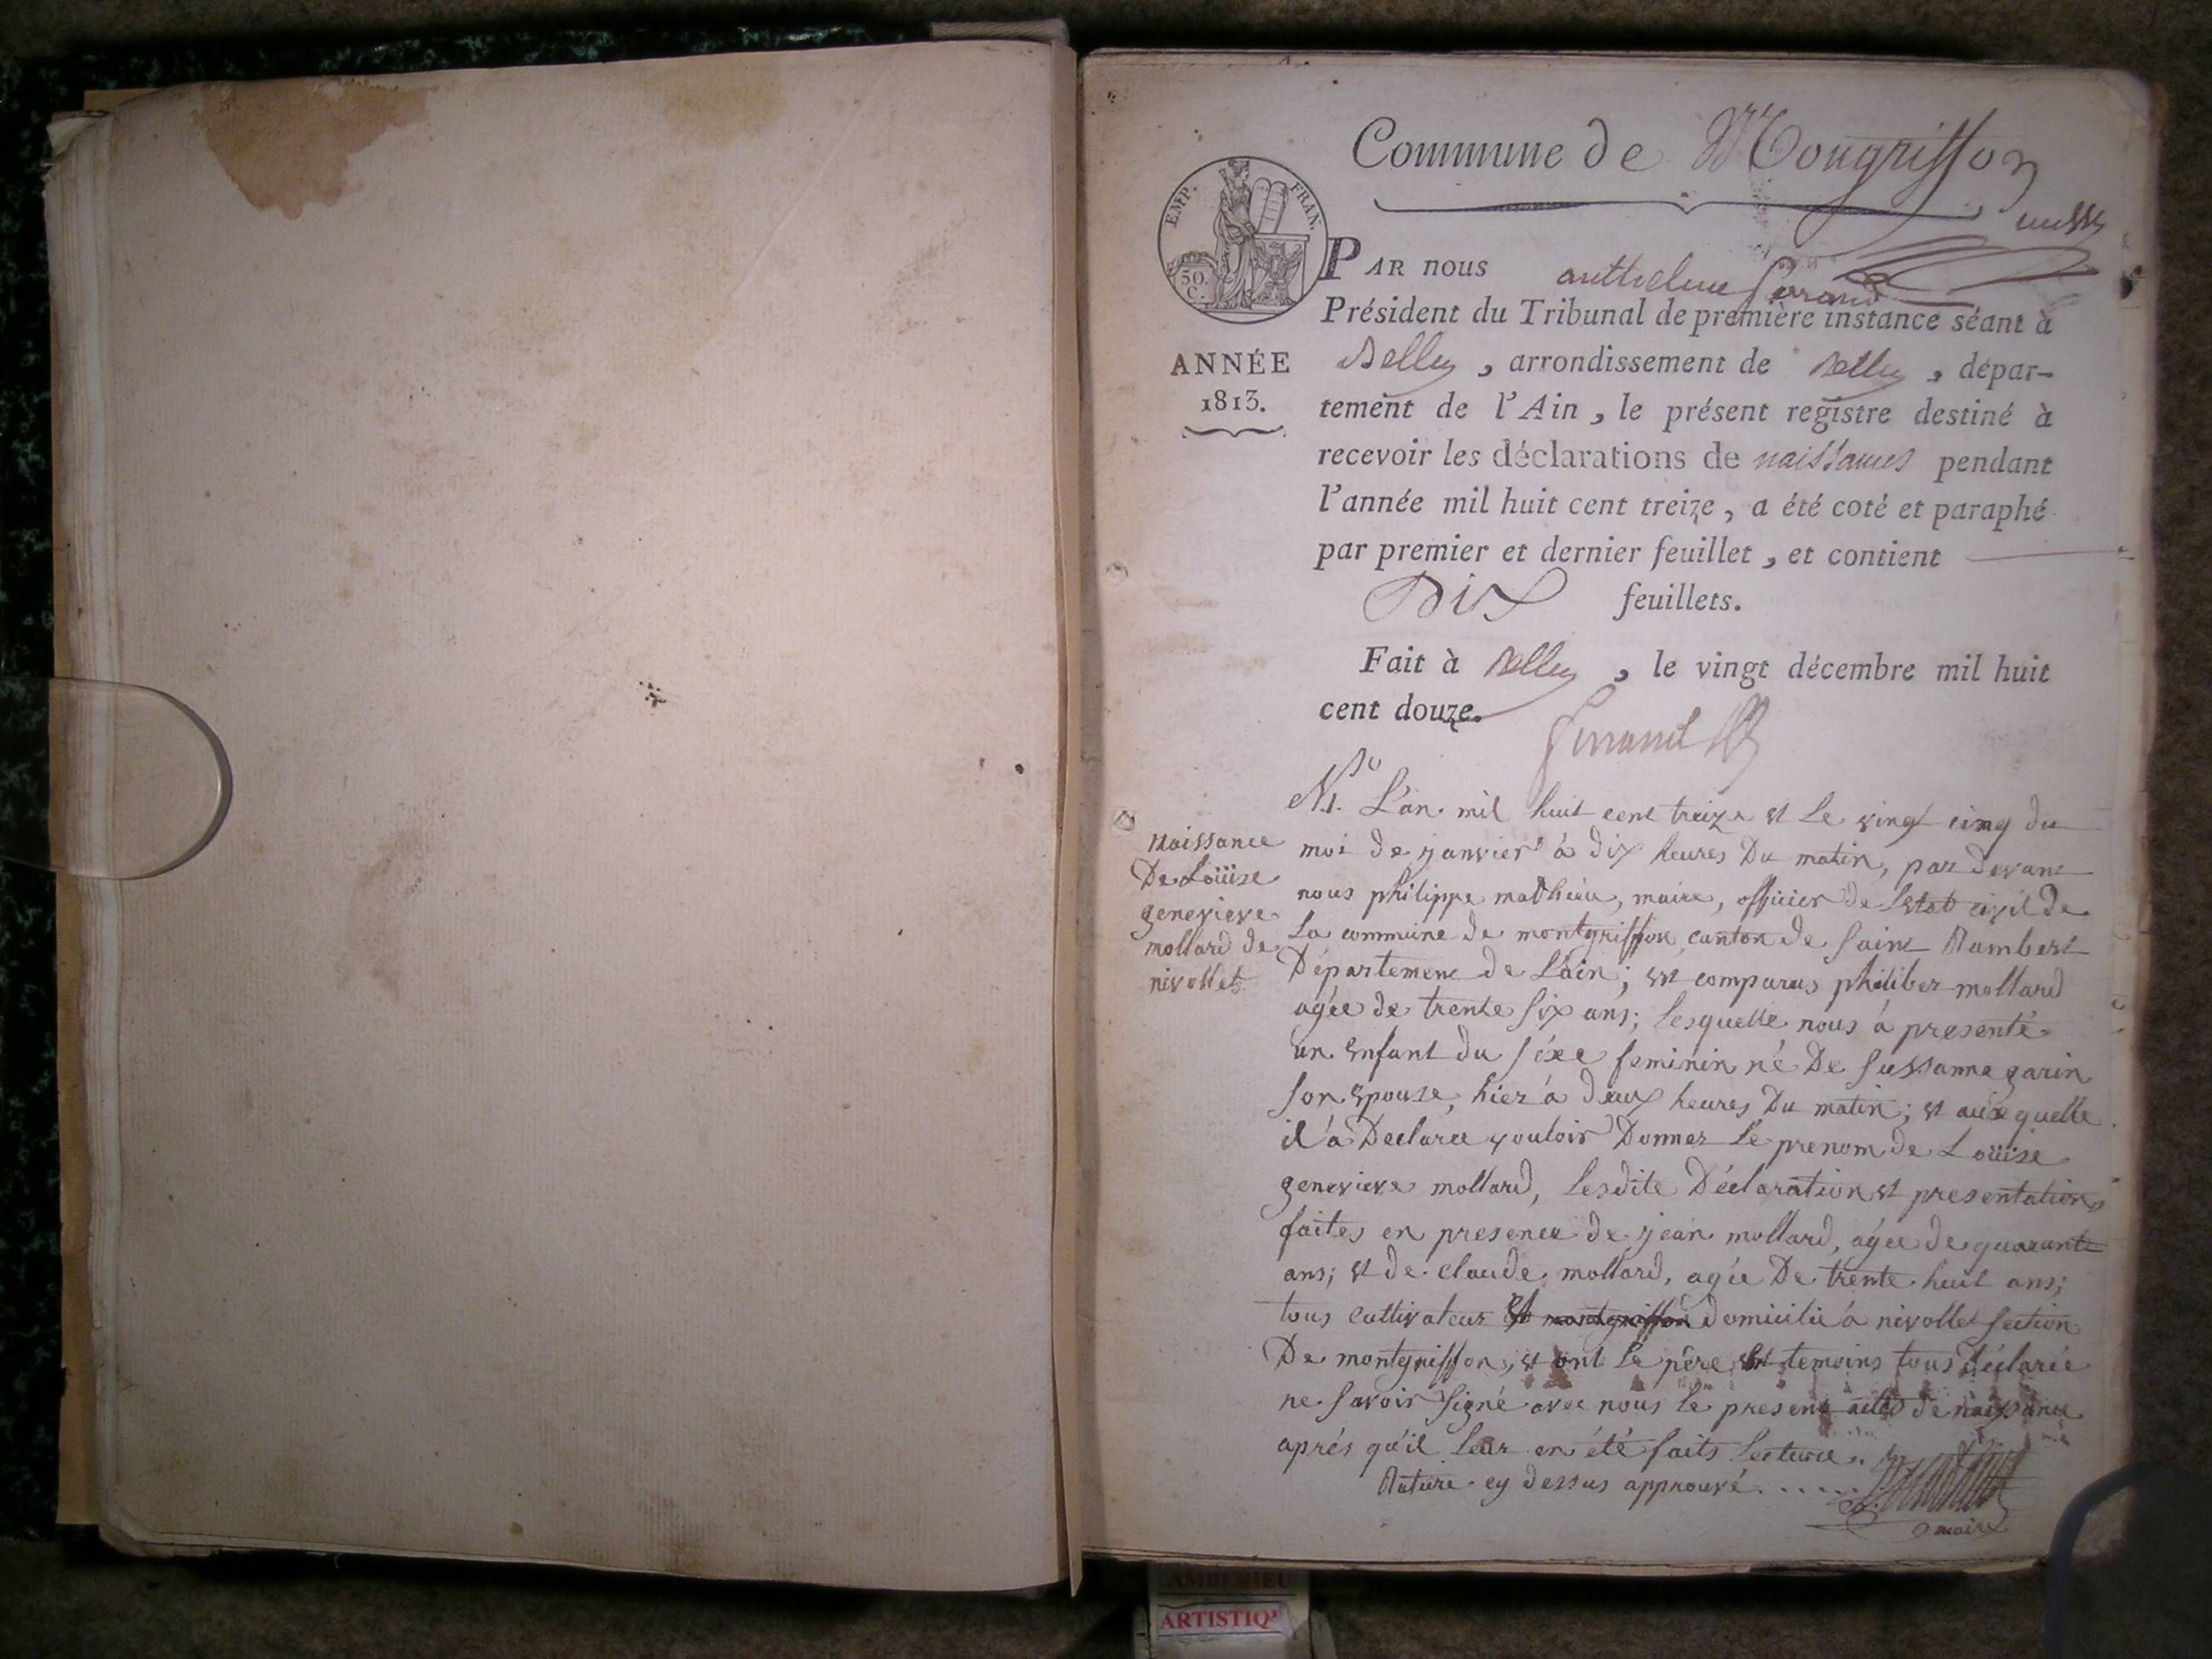 Commune de Mongriffon
EMP. FRAN.
50. C.
PAR nous anthelme ferrand
Président du Tribunal de première instance séant à
ANNÉE
1813.
Belley, arrondissement de Belley, dépar-
tement de l'Ain, le présent registre destiné à
recevoir les déclarations de naissances pendant
l'année mil huit cent treize, a été coté et paraphé
par premier et dernier feuillet, et contient
Dix feuillets.
Fait à Belley, le vingt décembre mil huit
cent douze.
ferrand
naissance
De Loüise
genevieve
mollard de
nivollet
N. 1. L'an mil huit cent treize et le vingt cinq du
moi de janvier à dix heures Du matin, par devant
nous philippe mathieu, maire, officier de l'etat civil de
La commune de montgriffon, canton de saint Rambert
Département de L'ain; est comparus philiber mollard
agée de trente six ans; lesquelle nous à presenté
un enfant du séxe feminin né De sussanne garin
son epouse, hier à deux heures Du matin; et auxquelle
il à Declaree vouloir Donner Le prenom de Loüise
genevieve mollard, lesdite Déclaration et presentation
faites en presence de jean mollard, agée de quarante
ans; et de claude mollard, agée De trente huit ans;
tous cultivateur et montgriffon domicilié à nivollet section
De montgriffon, et ont le père et temoins tous déclarée
ne savoir signé avec nous le present acte de naissance
aprés qu'il leur en été faits lecture.
Rature cy dessus approuvé.....
maire
AMBERIEU
ARTISTIQ